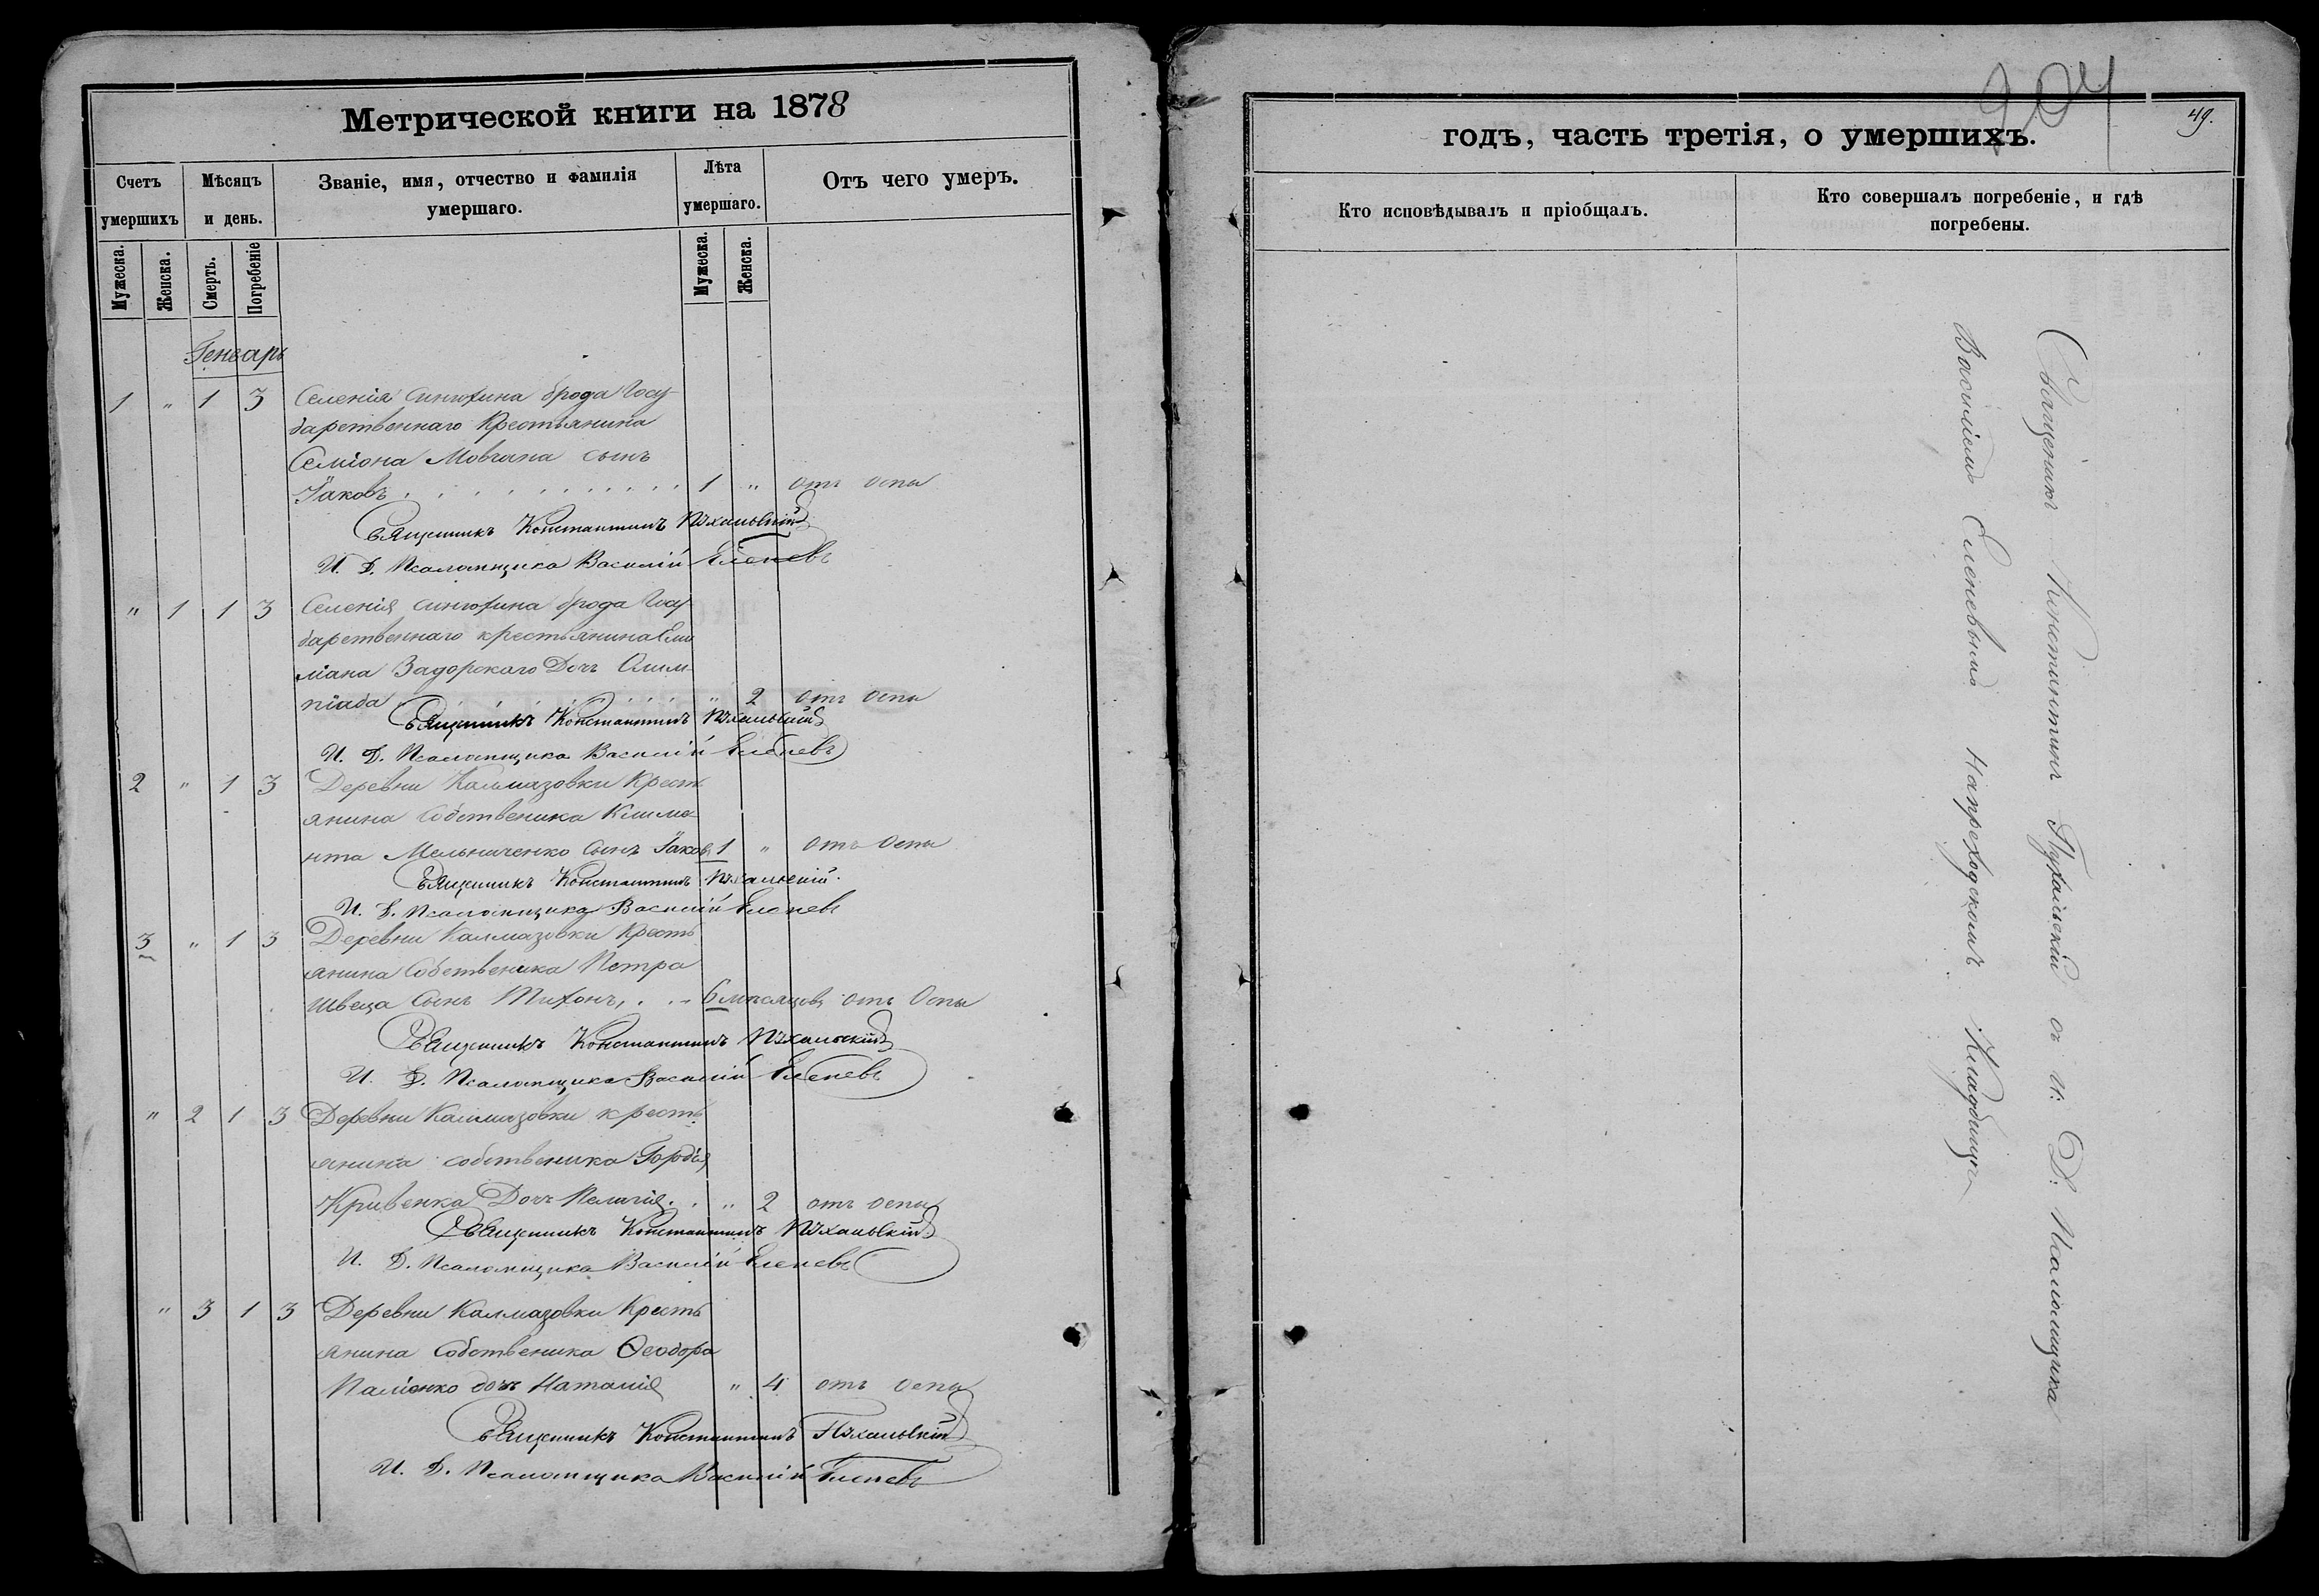 Метрической книги на 1878
Счетъ умершихъ
Мѣсяцъ и день.
Званіе, имя, отчество и фамилія умершаго.
Лѣта умершаго.
Отъ чего умеръ.
Мужеска.
Женска.
Смерть.
Погребеніе
Мужеска.
Женска.
Генварь
1 " 1 3 Селенія Синюхина брода Госу-
дарственнаго Крестьянина
Семіона Мовчана сынъ
Іаковъ . . . . . . . . . . 1 " отъ оспы
Священникъ Константинъ Пухальскій
И. Д. Псаломщика Василій Еленевъ
" 1 1 3 Селенія Синюхина брода Госу
дарственнаго крестьянина Еми
ліана Задорскаго Дочь Олим-
піада . . . . . . . " 2 отъ оспы
Священникъ Константинъ Пухальскій
И. Д. Псаломщика Василій Еленевъ
2 " 1 3 Деревни Калмазовки Крестъ
янина Собственика Климе-
нта Мельниченко Сынъ Іаковъ 1 " отъ оспы
Священникъ Константинъ Пухальскій.
И. Д. Псаломщика Василій Еленевъ
3 " 1 3 Деревни Калмазовки Кресть
янина Собственика Петра
Швеца Сынъ Тихонъ, . . 6 мѣсяцовъ отъ Оспы
Священникъ Константинъ Пухальскій
И. Д. Псаломщика Василій Еленевъ
" 2 1 3 Деревни Калмазовки кресть
янина собственика Гордія
Кривенка Дочь Пелагія . . " 2 отъ оспы
Священникъ Константинъ Пухальскій
И. Д. Псаломщика Василій Еленевъ
" 3 1 3 Деревни Калмазовки Кресть
янина Собственика Ѳеодора
Паліенко дочь Наталія " 4 отъ оспы
Священникъ Константинъ Пухальскій
И. Д. Псаломщика Василій Еленевъ
204
49.
годъ, часть третія, о умершихъ.
Кто исповѣдывалъ и пріобщалъ.
Кто совершалъ погребеніе, и гдѣ погребены.
Священикъ Константинъ Пухальскій съ И: Д: Псаломщика
Василіемъ Еленевымъ На приходскомъ Кладбищѣ